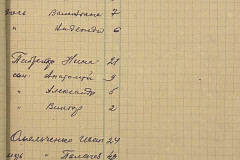 дочь Валентина 7
" Надежда 6
Пайдентр Нина 21
сын Анатолий 9
" Александр 5
" Виктор 2
Омельченко Иван 24
мать " Пелагея